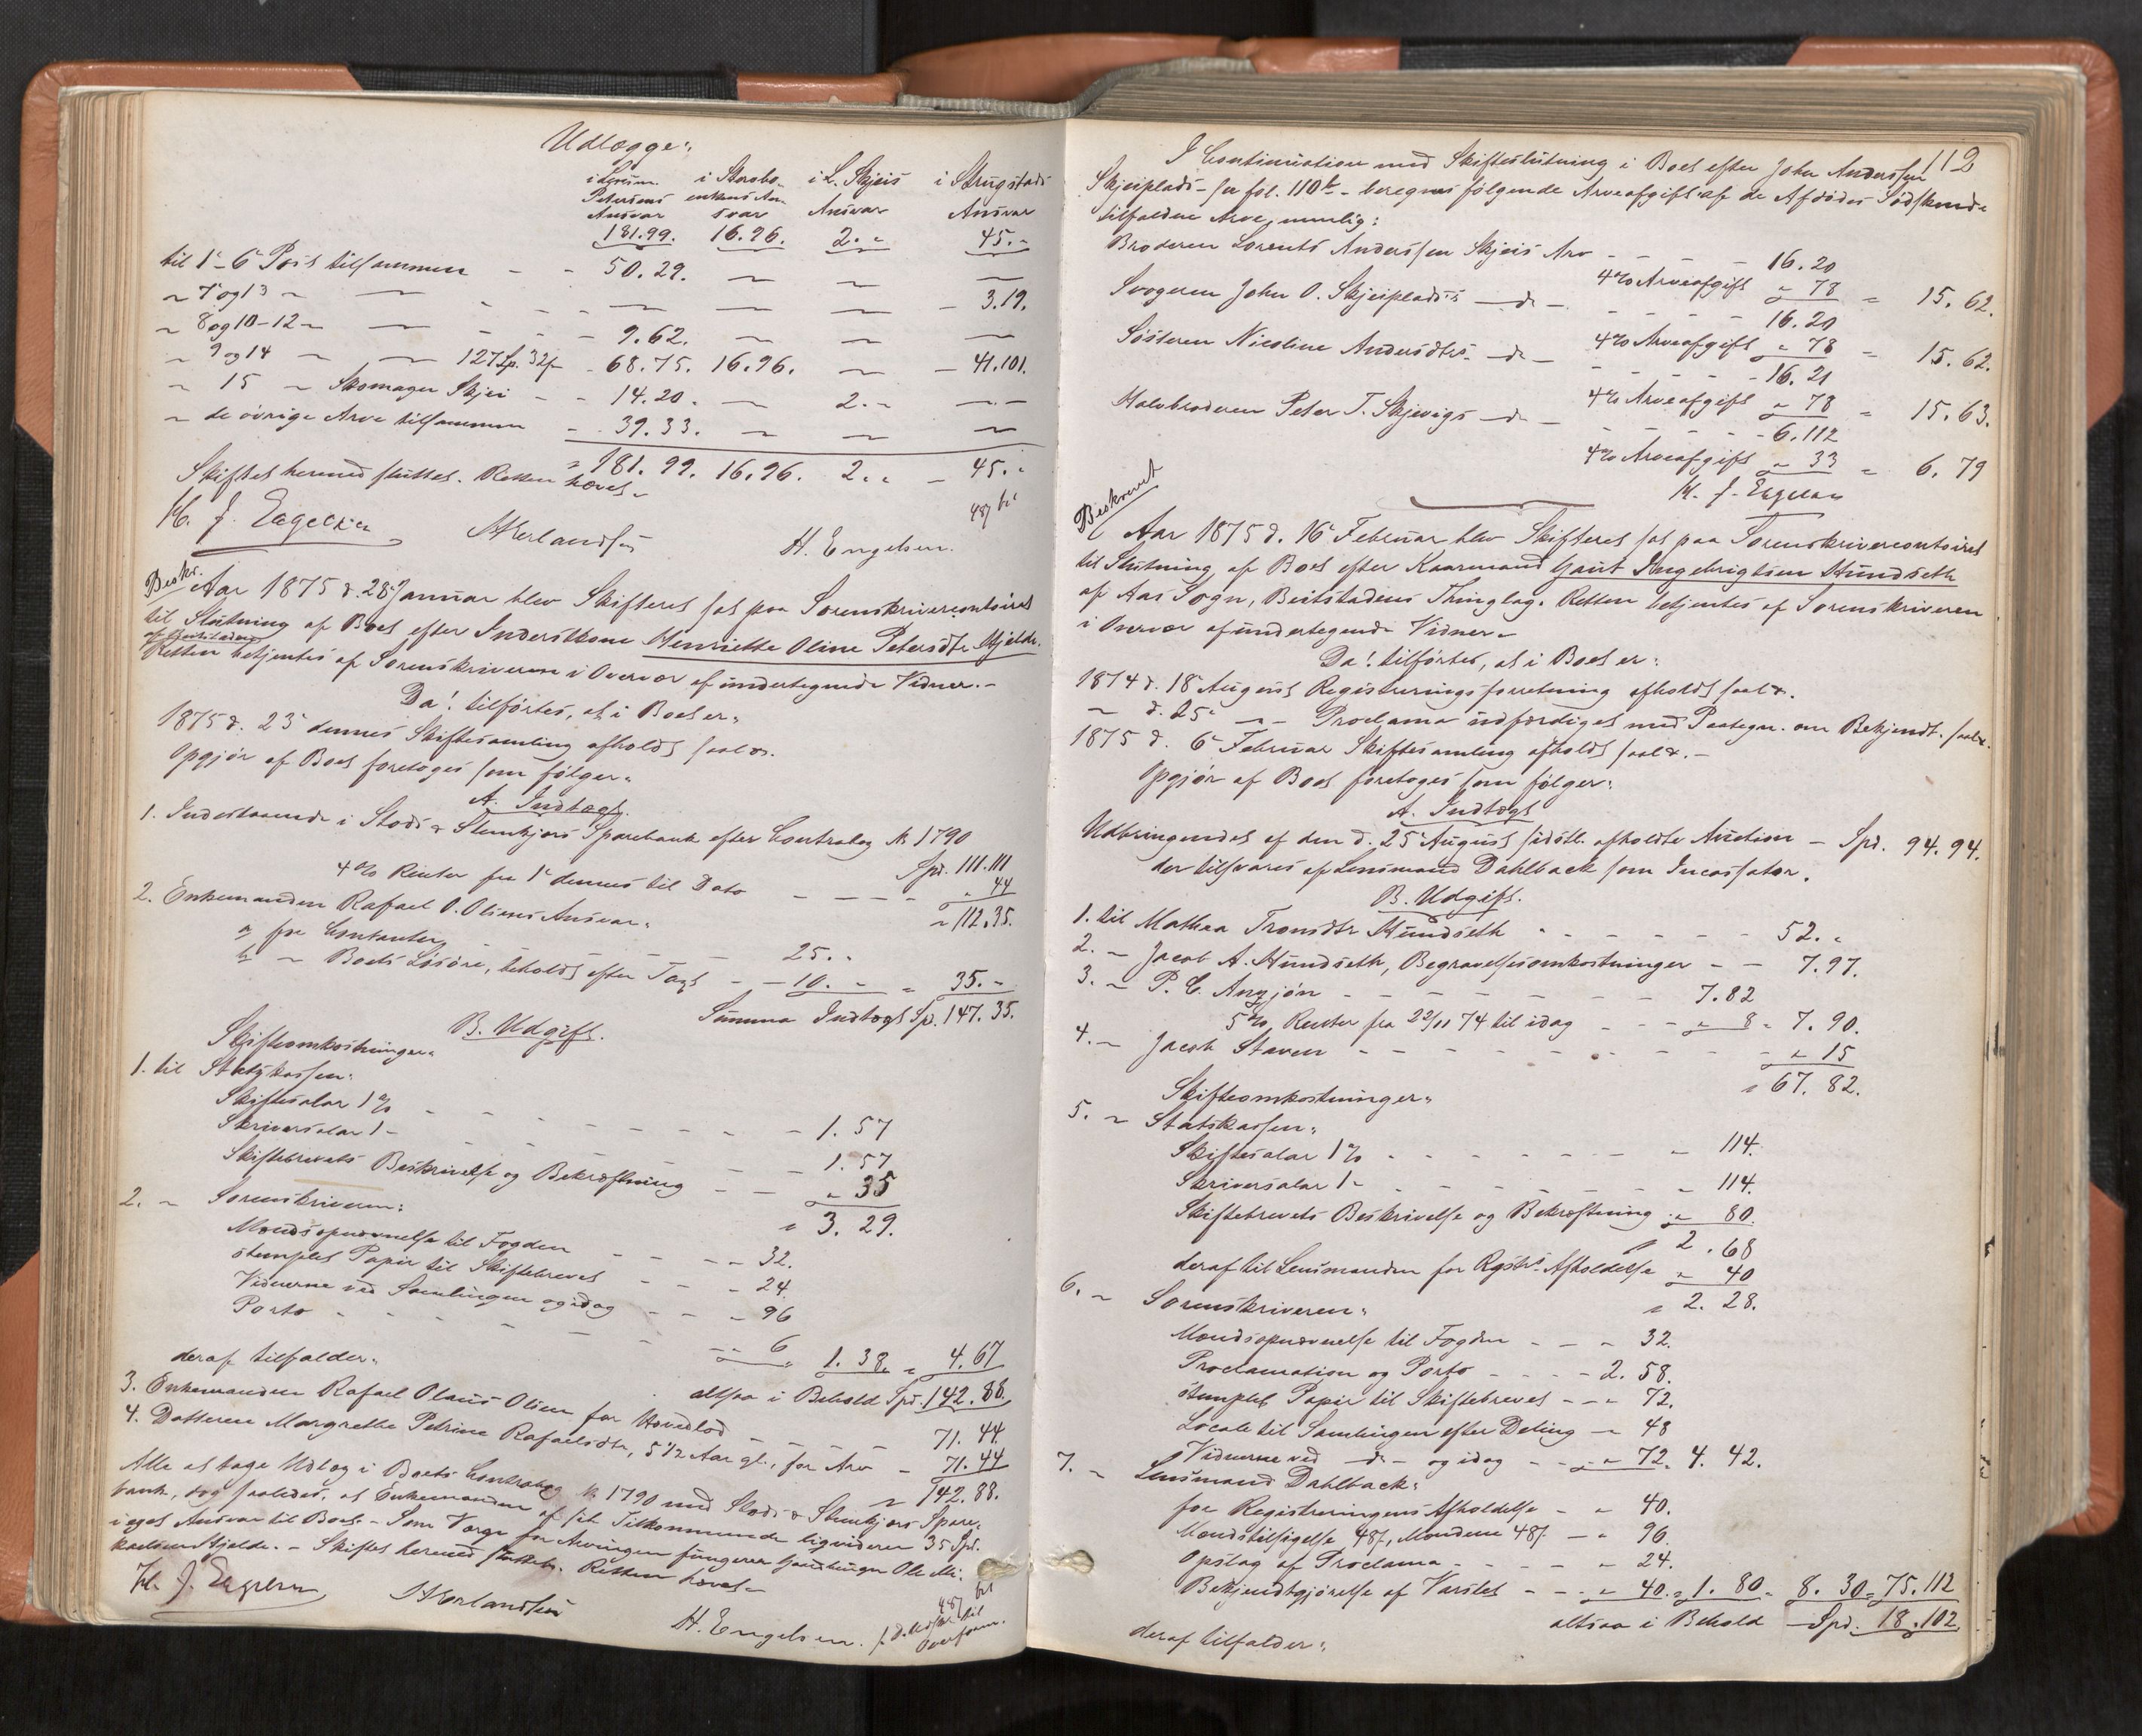 Udlægge:
i Lorents i Storebo- i L. Skjeis i Strugstads
Petersens enkens An-
Ansvar svar Ansvar Ansvar
181.99. 16.96. 2. " 45. "
til 1e-6e Post tilsammen - - 50.29. ~ ~ ~
~ 7e og 13 ~ — - - ~ ~ ~ - 3.19.
~ 8 og 10-12 ~ — - - - 9.62. ~ ~ ~
~ 9 og 14 ~ — 127 Sp. 32 f - 68.75. 16.96. ~ - 41.101.
~ 15 ~ Skomager Skjei - - 14.20. ~ 2. " ~
~ de øvrige Arve tilsammen - 39.33. ~ ~ ~
" 181.99. 16.96. 2. " - 45. "
Skiftet hermed sluttet. Retten hævet.
H. J. Engelsen Herlandsen H. Engelsen.
Beskr.
Aar 1875 d. 28e Januar blev Skifteret sat paa Sorenskrivercontoiret
til Slutning af Boet efter Inderstkone Henriette Oline Petersdtr Hjelde.
Retten betjentes af Sorenskriveren i Overvær af undertegnede Vidner. -
Da! tilførtes, at i Boet er:
1875 d. 23e dennes Skiftesamling afholdt saal.
Opgjør af Boet foretoges som følger:
A. Indtægt.
1. Indestaaende i Stods & Stenkjærs Sparebank efter Contrabog No 1790
Spd. 111.111
4% Renter fra 1e dennes til Dato - - - - " 44
~ 112.35.
2. Enkemanden Rafael O. Olsens Ansvar:
a, for Contanter - - - - 25. "
b, ~ Boets Løsøre, beholdt efter Taxt - - 10. - " 35. -
Summa Indtægt Sp. 147.35.
B. Udgift.
Skifteomkostninger:
1. til Statskassen:
Skiftesalar 1% - - - - - - - 1.57
Skriversalar 1 - - - - - - - 1.57
Skiftebrevets Beskrivelse og Bekræftning - - " 35
" 3.29.
2. ~ Sorenskriveren:
Mændsopnævnelse til Fogden - - - - 32.
stemplet Papir til Skiftebrevet - - - 24.
Vidnerne ved Samlingen og idag - - - 96
Porto - - - - - - - 6 " 1.38. " 4.67
altsaa i Behold Spd. 142.88.
deraf tilfalder:
3. Enkemanden Rafael Olaus Olsen for Hovedlod - - - 71.44.
4. Datteren Margrethe Petrine Rafaelsdtr, 5 1/2 Aar gl., for Arv - 71.44
~ 142.88.
Alle at tage Udlæg i Boets Contrabog No 1790 med Stods & Stenkjærs Spare-
bank, dog saaledes, at Enkemanden af sit Tilkommende ligviderer 35 Spd.
i eget Ansvar til Boet. - Som Værge for Arvingen fungerer Gaardbruger Ole Mi-
kaelsen Hjelde. - Skiftet hermed sluttet. Retten hævet.
H. J. Engelsen Herlandsen H. Engelsen.
112
I Continuation med Skifteslutning i Boet efter John Anderssen
Skjeiplads - se fol. 110b - beregnes følgende Arveafgift af de Afdødes Sødskende
tilfaldne Arve, nemlig:
Broderen Lorents Anderssen Skjeis Arv - - - - 16.20
4% Arveafgift " 78 = 15.62.
Svogeren John O. Skjeiplads's — do - - - - 16.20
4% Arveafgift " 78 = 15.62.
Søsteren Nicoline Andersdtrs - do - - - - - 16.21
4% Arveafgift " 78 = 15.63.
Halvbroderen Peter T. Skjevigs - do - - - - - 6.112
4% Arveafgift " 33 = 6.79
H. J. Engelsen
Beskrevet
Aar 1875 d. 16e Februar blev Skifteret sat paa Sorenskrivercontoiret
til Slutning af Boet efter Kaarmand Gaut Ingebrigtsen Hundseth
af Aas Sogn, Beitstadens Thinglag. Retten betjentes af Sorenskriveren
i Overvær af undertegnede Vidner.
Da! tilførtes, at i Boet er:
1874 d. 18e August Registreringsforretning afholdt saal.
~ d. 25e ~ - Proclama udfærdiget med Paategn. om Bekjendt. saal.
1875 d. 6e Februar Skiftesamling afholdt saal. -
Opgjør af Boet foretoges som følger:
A. Indtægt
Udbringendet af den d. 25e August sidstl. afholdte Auction - Spd. 94.94.
der tilsvares af Lensmand Dahlback som Incassator.
B. Udgift.
1. til Mathea Tronsdtr Hundseth - - - - - - 52. "
2. ~ Jacob A. Hundseth, Begravelsesomkostninger - - 7.97.
3. ~ P. C. Angjøn - - - - - - 7.82
5% Renter fra 22/11 74 til idag - - - " 8 = 7.90.
4. ~ Jacob Staven - - - - - - - - - " 15
" 67.82.
Skifteomkostninger:
5. ~ Statskassen:
Skiftesalar 1% - - - - - - - 114.
Skriversalar 1 - - - - - - - 114.
Skiftebrevets Beskrivelse og Bekræftning " 80.
" 2.68
deraf til Lensmanden for Rgstrs Afholdelse " 40
" 2.28.
6. ~ Sorenskriveren:
Mændsopnævnelse til Fogden - - - 32.
Proclamation og Porto - - - - 2.58.
stemplet Papir til Skiftebrevet - - - 72.
Locale til Samlingen efter Deling - 48
Vidnerne ved - do - og idag - - - " 72. 4.42.
7. ~ Lensmand Dahlback:
for Registreringens Afholdelse - " 40.
Mændstilsigelse 48 f, Mændene 48 f. - " 96.
Opslag af Proclama - - - - " 24.
Bekjendtgjørelse af Varslet - - - " 40. " 1.80 - 8.30 = 75.112
altsaa i Behold Spd. 18.102.
deraf tilfalder: